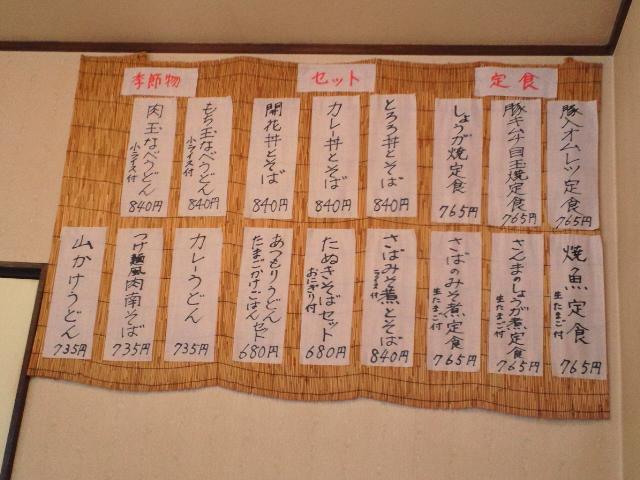 定食
豚入オムレツ定食
765円
豚キムチ目玉焼定食
765円
しょうが焼定食
765円
焼魚定食
生たまご付
765円
さんまのしょうが煮定食
生たまご付
765円
さばのみそ煮定食
生たまご付
765円
セット
とろろ丼とそば
840円
カレー丼とそば
840円
開花丼とそば
840円
さばみそ煮とそば
840円
たぬきそばセット
おにぎり付
680円
あつもりうどん
たまごかけごはんセット
680円
季節物
もち玉なべうどん
小ライス付
840円
肉玉なべうどん
小ライス付
840円
カレーうどん
735円
つけ麺風肉南そば
735円
山かけうどん
735円